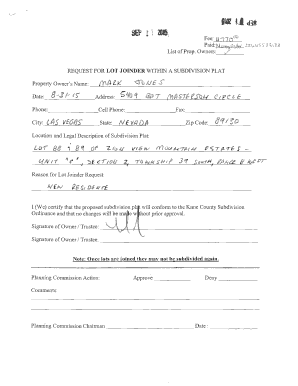 SEP 2015
Fee:
Paid:
List of Prop. Owners:
REQUEST FOR LOT JOINDER WITHIN A SUBDIVISION PLAT
Property Owner's Name: MARK JONES
Date 8-31-15 Address: 5409 BAT MASTERSON CIRCLE
Phone: Cell Phone: Fax:
City: LAS VEGAS State: NEVADA Zip Code: 89130
Location and Legal Description of Subdivision Plat:
LOT 88 & 89 OF ZION VIEW MOUNTAIN ESTATES -
UNIT "P", SECTION 2, TOWNSHIP 39 SOUTH, RANGE 8 WEST
Reason for Lot Joinder Request:
NEW RESIDENCE
I (We) certify that the proposed subdivision plat will conform to the Kane County Subdivision
Ordinance and that no changes will be made without prior approval.
Signature of Owner / Trustee:
Signature of Owner / Trustee:
Note: Once lots are joined they may not be subdivided again.
Planning Commission Action: Approve Deny
Comments:
Planning Commission Chairman Date: